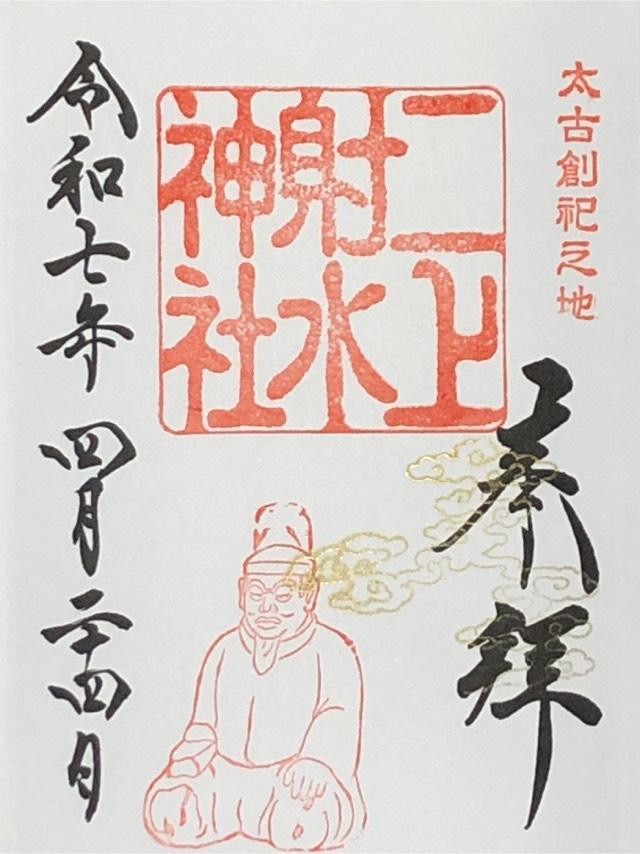 太古創祀之地
奉拝
二上
射水
神社
令和七年 四月二十四日